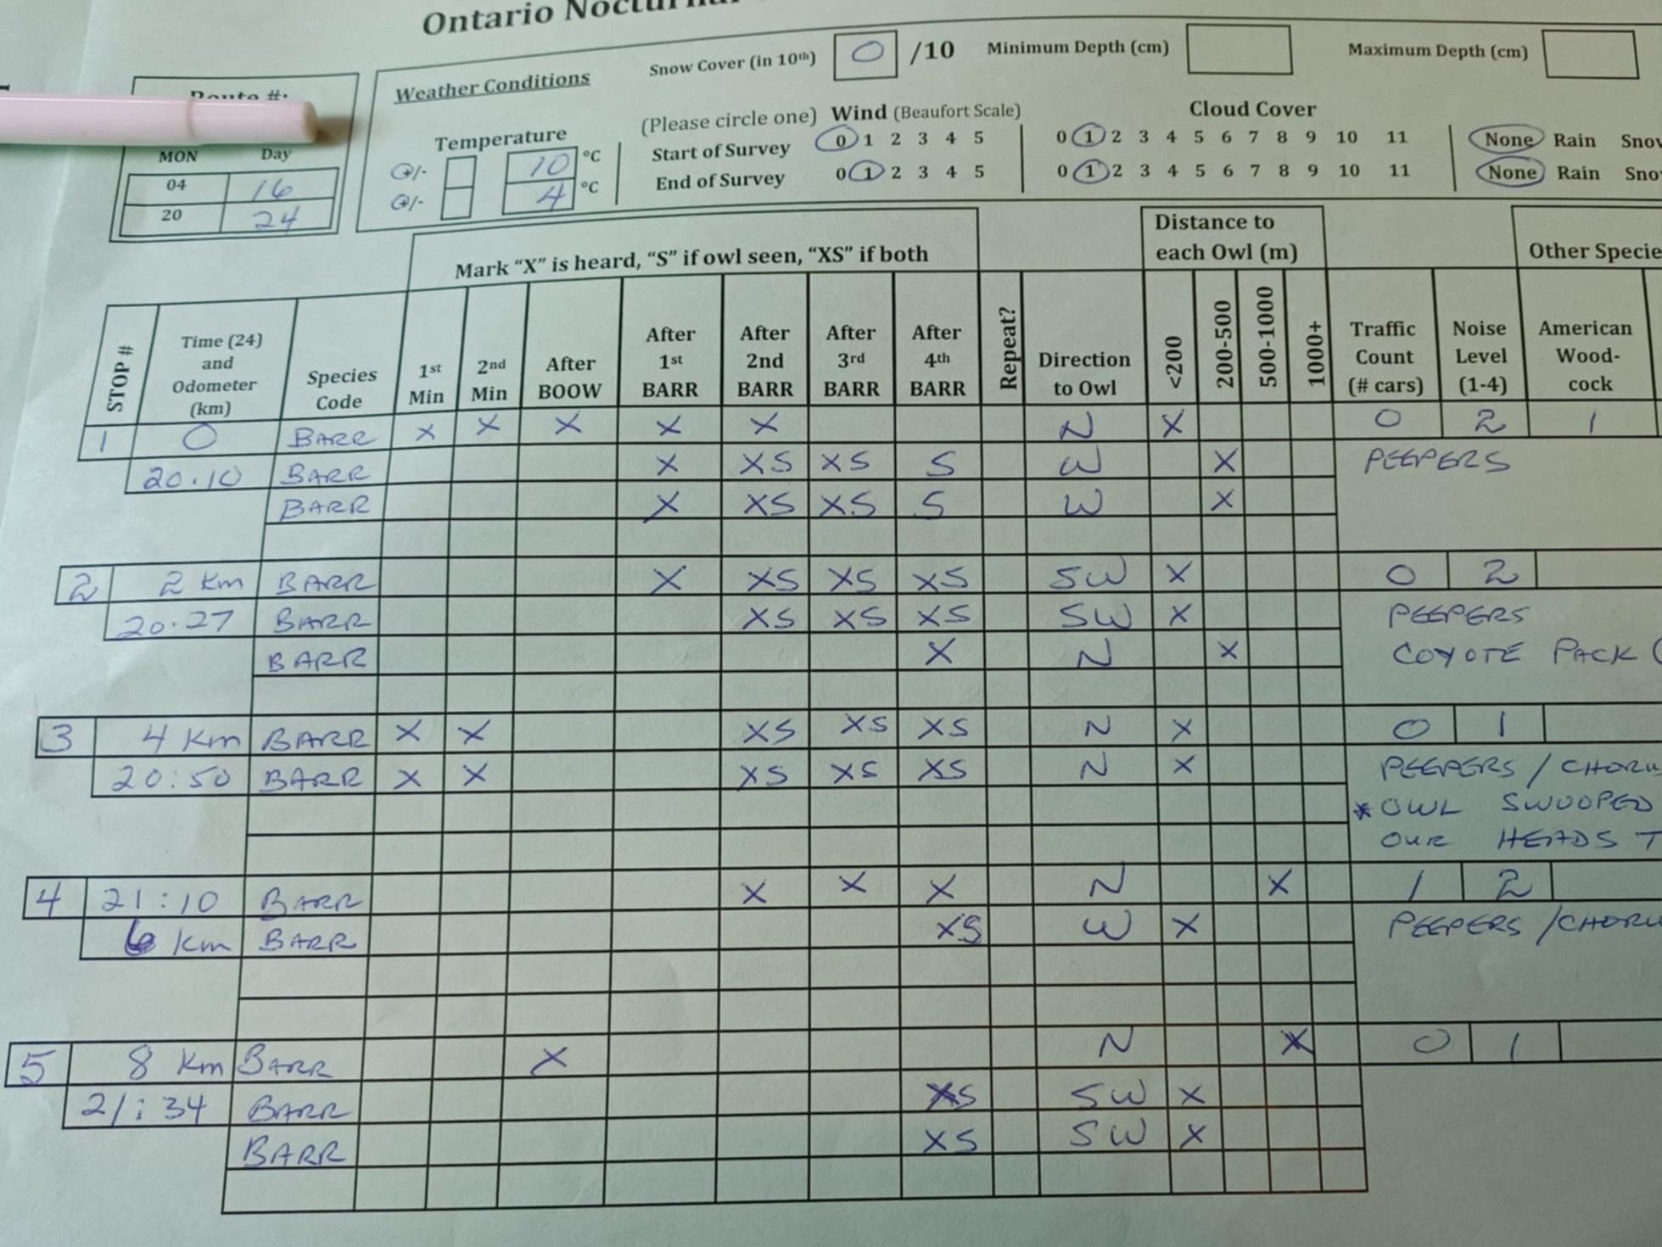 Ontario Nocturnal
Weather Conditions
Snow Cover (in 10th) 0 /10 Minimum Depth (cm) Maximum Depth (cm)
Route #:
(Please circle one) Wind (Beaufort Scale) Cloud Cover
Temperature
MON Day
+/- 10 °C Start of Survey 0 1 2 3 4 5 0 1 2 3 4 5 6 7 8 9 10 11 None Rain Snow
04 16
+/- 4 °C End of Survey 0 1 2 3 4 5 0 1 2 3 4 5 6 7 8 9 10 11 None Rain Sno
20 24
Mark "X" is heard, "S" if owl seen, "XS" if both
Distance to each Owl (m)
Other Specie
STOP # Time (24) and Odometer (km) Species Code 1st Min 2nd Min After BOOW After 1st BARR After 2nd BARR After 3rd BARR After 4th BARR Repeat? Direction to Owl <200 200-500 500-1000 1000+ Traffic Count (# cars) Noise Level (1-4) American Wood-cock
1 0 BARR X X X X X N X 0 2 1
20.10 BARR X XS XS S W X PEEPERS
BARR X XS XS S W X
2 2 Km BARR X XS XS XS SW X 0 2
20.27 BARR XS XS XS SW X PEEPERS
BARR X N X COYOTE PACK (
3 4 Km BARR X X XS XS XS N X 0 1
20:50 BARR X X XS XS XS N X PEEPERS / CHORU
* OWL SWOOPED
OUR HEADS T
4 21:10 BARR X X X N X 1 2
6 km BARR XS W X PEEPERS / CHORU
5 8 Km BARR X N X 0 1
21:34 BARR XS SW X
BARR XS SW X